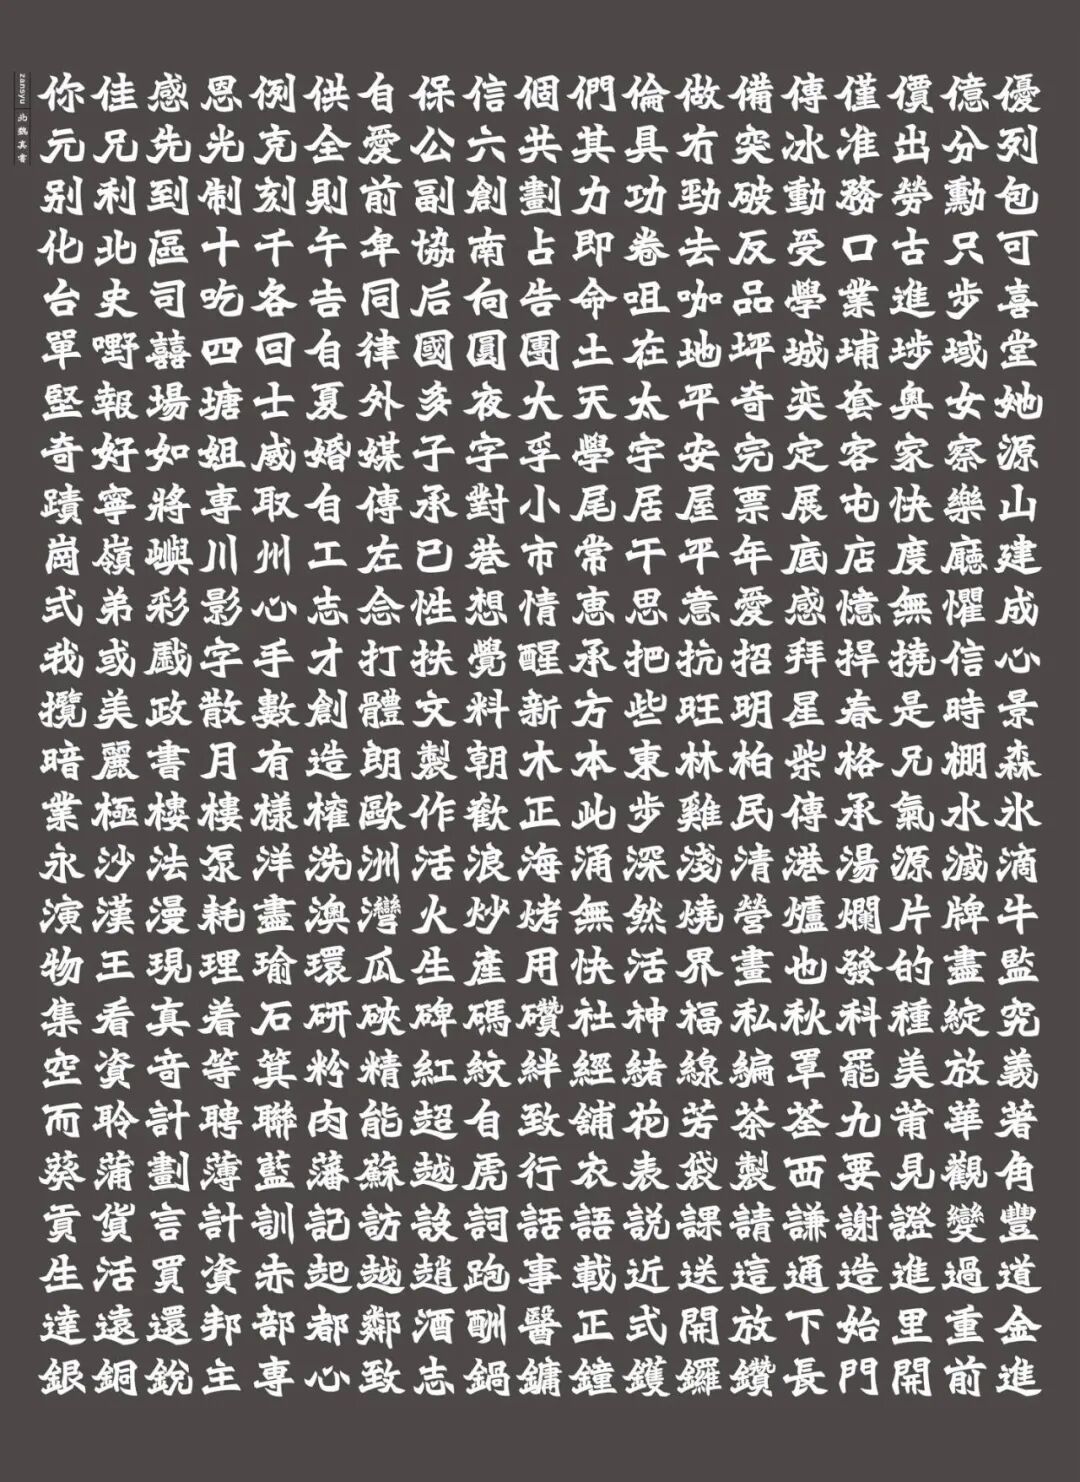 zansyu 北魏真書
你佳感恩例供自保信個們倫做備傳僅價億優
元兄先光克全愛公六共其具冇突冰准出分列
别利到制刻則前副創劃力功勁破動務勞勳包
化北區十千午卑協南占即卷去反受口古只可
台史司吃各告同后向告命咀咖品學業進步喜
單嘢囍四回自律國圓團土在地坪城埔埗域堂
堅報場塘士夏外多夜大天太平奇奕套奧女她
奇好如姐威婚媒子字孚學宇安完定客家察源
蹟寧將專取自傳承對小尾居屋票展屯快樂山
崗嶺嶼川州工左已巷市常干平年底店度廳建
式弟彩影心志念性想情恵思意愛感憶無懼成
我或戲字手才打扶覺醒承把抗招拜捍撓信心
攬美政散數創體文料新方些旺明星春是時景
暗麗書月有造朗製朝木本東林柏柴格兄棚森
業極樓樓樣榷歐作歡正此步雞民傳承氣水氷
永沙法泵洋洗洲活浪海涌深淺清港湯源滅滴
演漢漫耗盡澳灣火炒烤無然燒營爐爛片牌牛
物王現理瑜環瓜生產用快活界畫也發的盡監
集看真着石研硤碑碼礸社神福私秋科種綻究
空資竒等箕粉精紅紋絆經緒線編罩罷美放義
而聆計聘聯肉能超自致舖花芳茶荃九莆華著
葵蒲劃薄藍藩蘇越虎行衣表袋製西要見觀角
貢貨言計訓記訪設詞話語説課請謙謝證變豐
生活買資赤起越趙跑事載近送這通造進過道
達遠還邦部都鄰酒酬醫正式開放下始里重金
銀銅銳主專心致志鍋鏞鐘鑊鑼鑽長門開前進